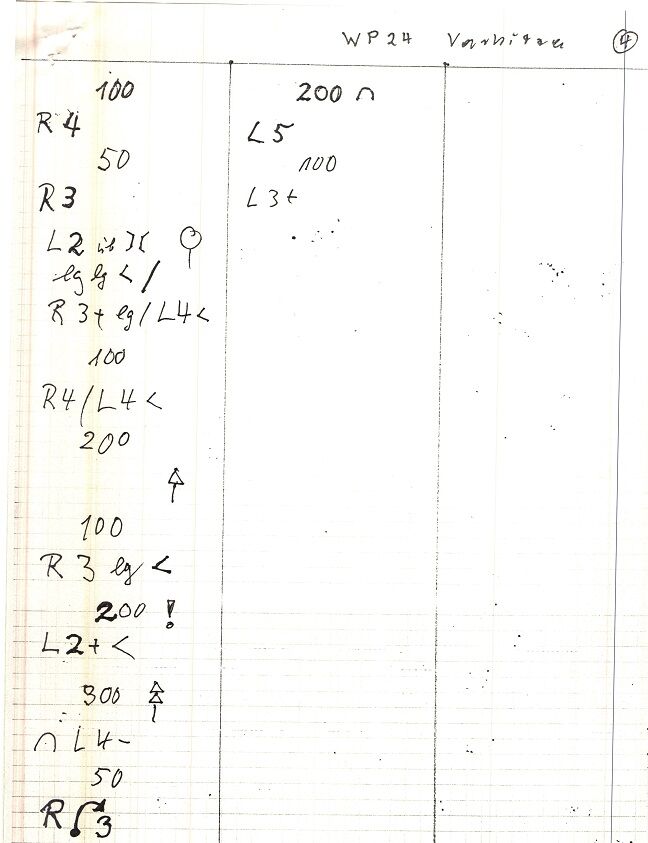 WP24 ④
100
R 4
50
R 3
L2 üb )(
lg lg < /
R 3+ lg / L4 <
100
R4 / L4 <
200
100
R 3 lg <
200 !
L2+ <
300
∩ L 4-
50
R 3
200 ∩
L 5
100
L 3+